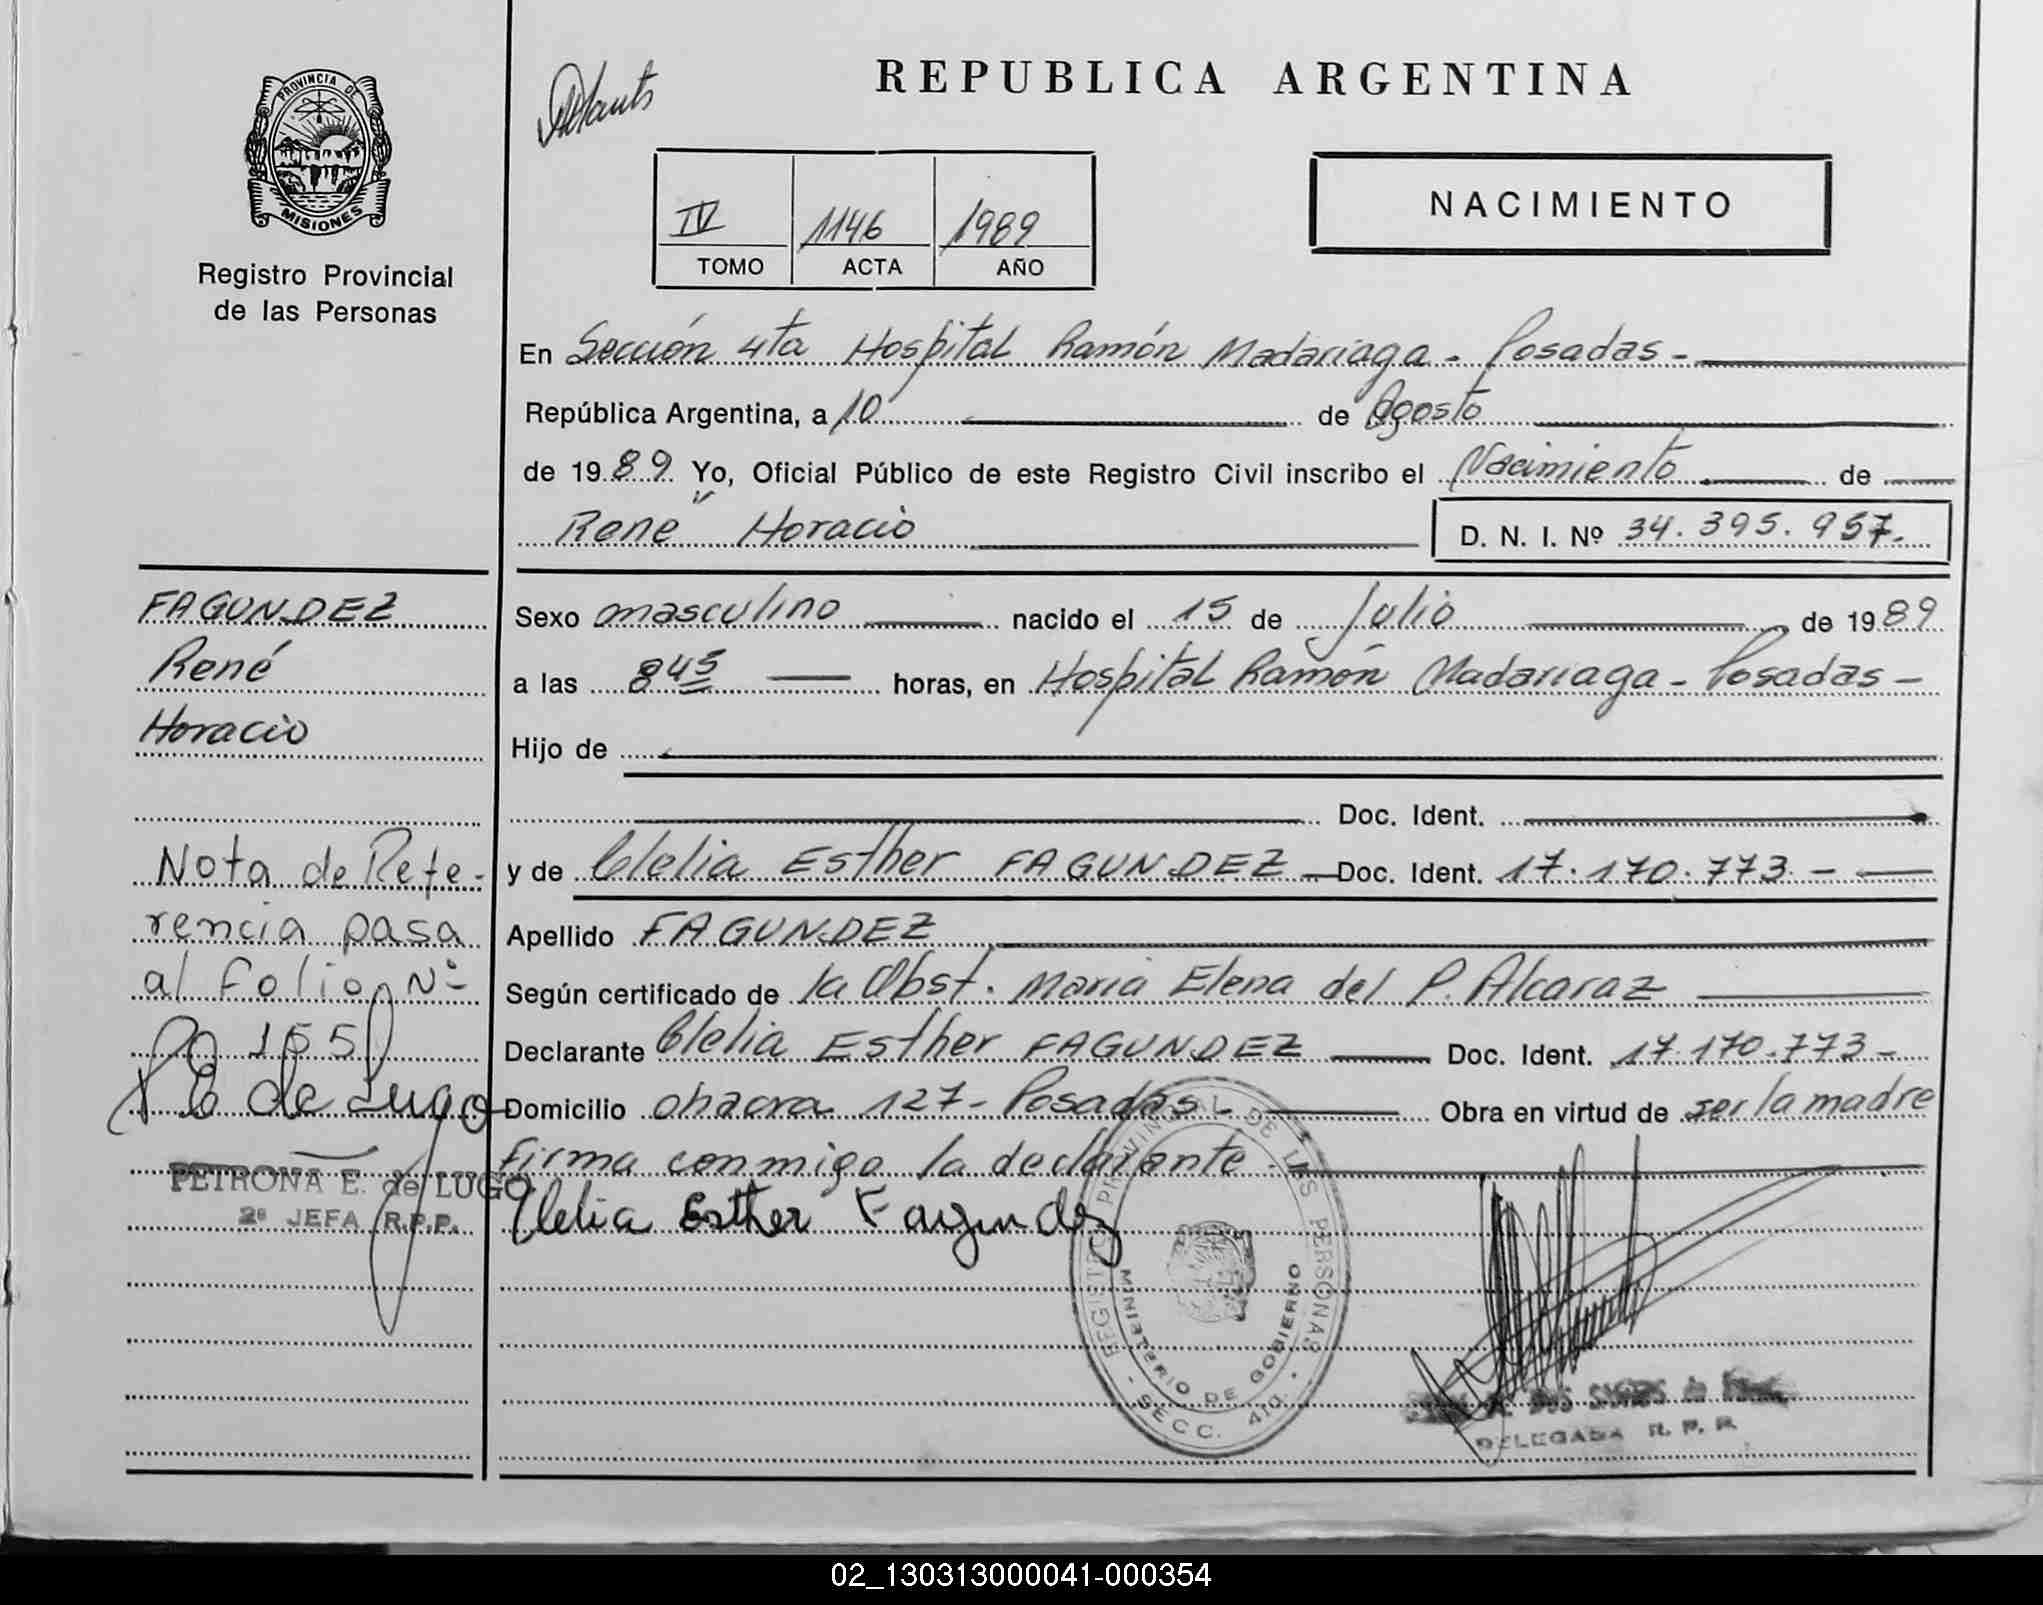 PROVINCIA DE
MISIONES
Registro Provincial
de las Personas
REPUBLICA ARGENTINA
NACIMIENTO
IV 1146 1989
TOMO ACTA AÑO
En Sección 4ta Hospital Ramón Madariaga - Posadas -
República Argentina, a 10 de Agosto
de 1989 Yo, Oficial Público de este Registro Civil inscribo el Nacimiento de
René Horacio D. N. I. Nº 34.395.957.
FAGUNDEZ
René
Horacio
Nota de Refe-
rencia pasa
al Folio Nº
155
P E de Lugo
PETRONA E. de LUGO
2ª JEFA R.P.P.
Sexo masculino nacido el 15 de Julio de 1989
a las 8 45 horas, en Hospital Ramón Madariaga - Posadas -
Hijo de
Doc. Ident.
y de Clelia Esther FAGUNDEZ Doc. Ident. 17.170.773 -
Apellido FAGUNDEZ
Según certificado de la Obst. Maria Elena del P. Alcaraz
Declarante Clelia Esther FAGUNDEZ Doc. Ident. 17.170.773 -
Domicilio chacra 127 - Posadas - Obra en virtud de ser la madre
Firma conmigo la declarante
Clelia Esther Fagundez
REGISTRO PROVINCIAL DE LAS PERSONAS
MINISTERIO DE GOBIERNO
- SECC. 4ta. -
DELEGADA R. P. P.
02_130313000041-000354